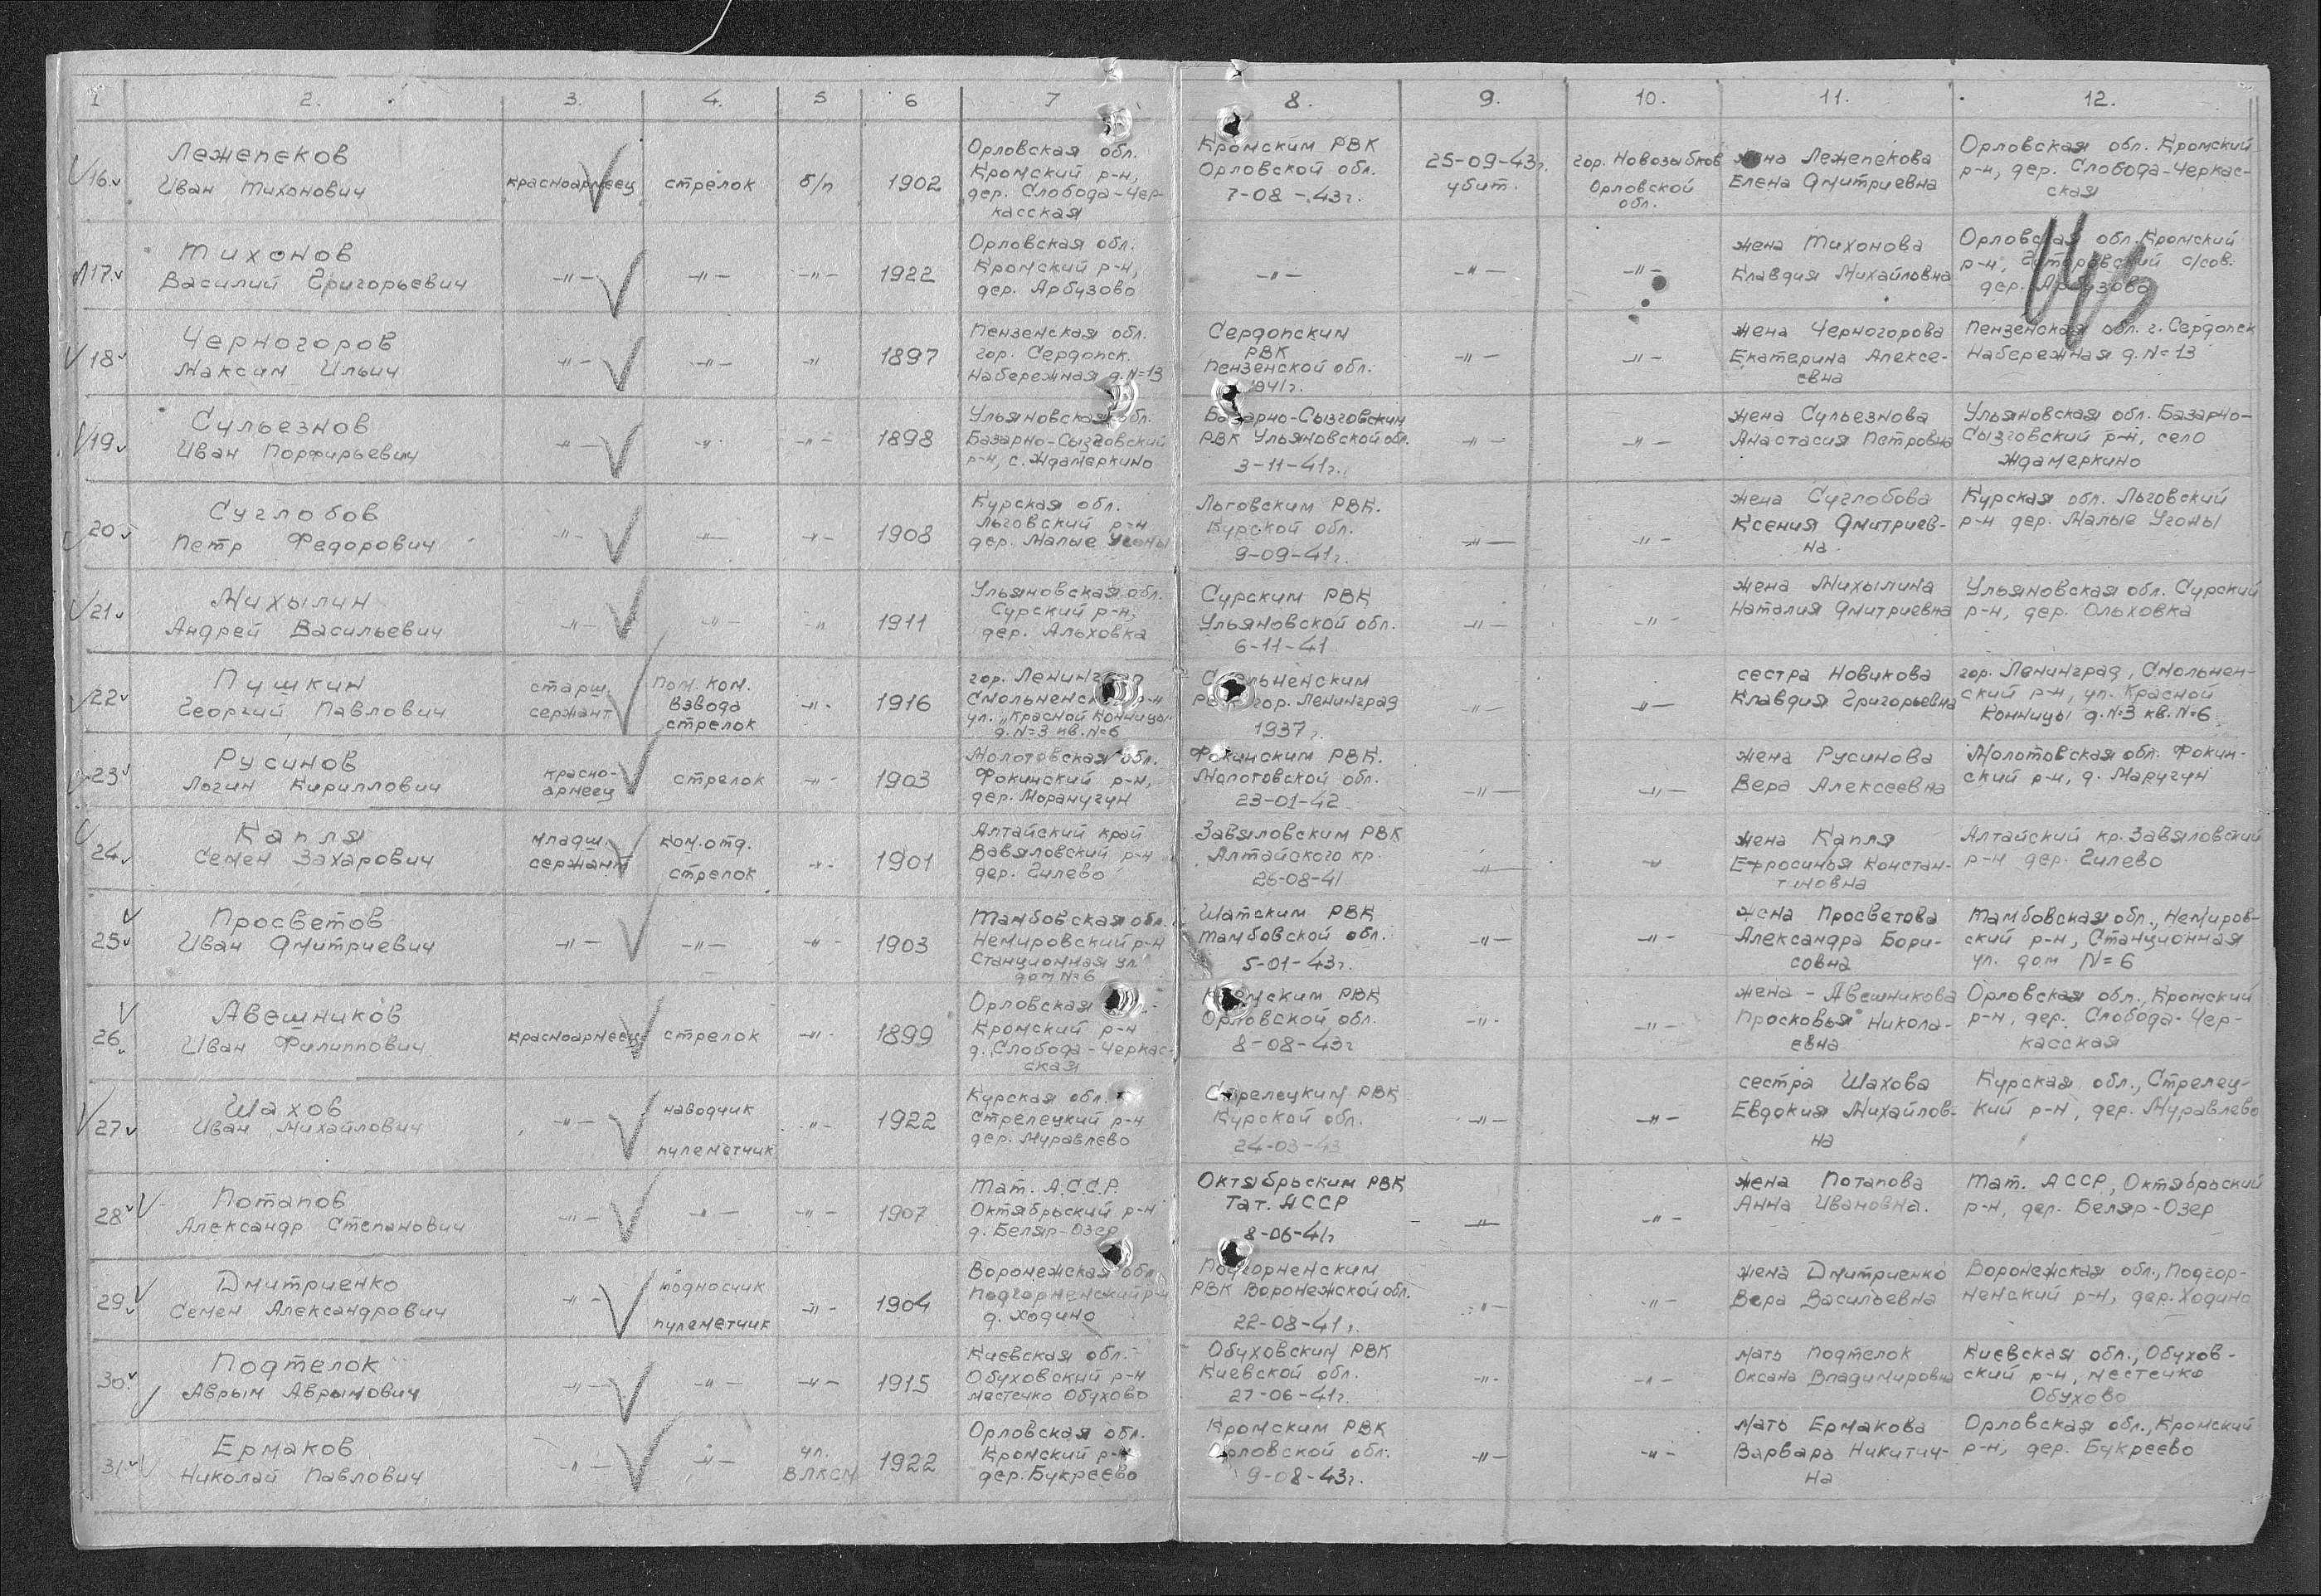 1 2. 3. 4. 5 6 7 8. 9. 10. 11. 12.
16 Лежепеков
Иван Тихонович
красноармеец
стрелок
б/п
1902
Орловская обл.
Кромский р-н,
дер. Слобода-Чер-
касская
Кромским РВК
Орловской обл.
7-08-43г.
25-09-43г.
убит.
гор. Новозыбков
Орловской
обл.
жена Лежепекова
Елена Дмитриевна
Орловская обл. Кромский
р-н, дер. Слобода-Черкас-
ская
17 Тихонов
Василий Григорьевич
-"- -"- -"-
1922
Орловская обл.
Кромский р-н,
дер. Арбузово
-"- -"- -"-
жена Тихонова
Клавдия Михайловна
Орловская обл. Кромский
р-н, с/сов.
дер. Арбузово
18 Черногоров
Максим Ильич
-"- -"- -"-
1897
Пензенская обл.
гор. Сердопск.
Набережная д.N=13
Сердопским
РВК
Пензенской обл.
1941г.
-"- -"-
жена Черногорова
Екатерина Алексе-
евна
Пензенская обл. г. Сердопск
Набережная д.N=13
19 Сульезнов
Иван Порфирьевич
-"- -"- -"-
1898
Ульяновская обл.
Базарно-Сызговский
р-н, с. Ждамеркино
Базарно-Сызговским
РВК Ульяновской обл.
3-11-41г.
-"- -"-
жена Сульезнова
Анастасия Петровна
Ульяновская обл. Базарно-
Сызговский р-н, село
Ждамеркино
20 Суглобов
Петр Федорович
-"- -"- -"-
1908
Курская обл.
Льговский р-н
дер. Малые Угоны
Льговским РВК.
Курской обл.
9-09-41г.
-"- -"-
жена Суглобова
Ксения Дмитриев-
на
Курская обл. Льговский
р-н дер. Малые Угоны
21 Михылин
Андрей Васильевич
-"- -"- -"-
1911
Ульяновская обл.
Сурский р-н,
дер. Альховка
Сурским РВК
Ульяновской обл.
6-11-41
-"- -"-
жена Михылина
Наталия Дмитриевна
Ульяновская обл. Сурский
р-н, дер. Ольховка
22 Пушкин
Георгий Павлович
старш.
сержант
пом. ком.
взвода
стрелок
-"-
1916
гор. Ленинград
Смольненский р-н
ул. "Красной Конницы"
д.N=3 кв.N=6
Смольненским
РВК гор. Ленинград
1937г.
-"- -"-
сестра Новикова
Клавдия Григорьевна
гор. Ленинград, Смольнен-
ский р-н, ул. Красной
Конницы д.N=3 кв.N=6
23 Русинов
Логин Кириллович
красно-
армеец
стрелок
-"-
1903
Молотовская обл.
Фокинский р-н,
дер. Моранугун
Фокинским РВК.
Молотовской обл.
23-01-42
-"- -"-
жена Русинова
Вера Алексеевна
Молотовская обл. Фокин-
ский р-н, д. Маругун
24 Капля
Семен Захарович
младш.
сержант
ком. отд.
стрелок
-"-
1901
Алтайский край
Вавяловский р-н
дер. Гилево
Завяловским РВК
Алтайского кр.
26-08-41
-"- -"-
жена Капля
Ефросинья Констан-
тиновна
Алтайский кр. Завяловский
р-н дер. Гилево
25 Просветов
Иван Дмитриевич
-"- -"- -"-
1903
Тамбовская обл.
Немировский р-н
Станционная ул.
дом N=6
Шатским РВК
Тамбовской обл.
5-01-43г.
-"- -"-
жена Просветова
Александра Бори-
совна
Тамбовская обл., Немиров-
ский р-н, Станционная
ул. дом N=6
26 Авешников
Иван Филиппович
красноармеец
стрелок
-"-
1899
Орловская
Кромский р-н
д. Слобода-Черкас-
ская
Кромским РВК
Орловской обл.
8-08-43г
-"- -"-
жена - Авешникова
Просковья Никола-
евна
Орловская обл., Кромский
р-н, дер. Слобода-Чер-
касская
27 Шахов
Иван Михайлович
-"-
наводчик
пулеметчик
-"-
1922
Курская обл.
Стрелецкий р-н
дер. Муравлево
Стрелецким РВК
Курской обл.
24-03-43
-"- -"-
сестра Шахова
Евдокия Михайлов-
на
Курская обл., Стрелец-
кий р-н, дер. Муравлево
28 Потапов
Александр Степанович
-"- -"- -"-
1907
Тат. А.С.С.Р.
Октябрьский р-н
д. Беляр-Озер
Октябрьским РВК
Тат. АССР
8-06-41г
-"- -"-
жена Потапова
Анна Ивановна.
Тат. АССР, Октябрьский
р-н, дер. Беляр-Озер
29 Дмитриенко
Семен Александрович
-"-
подносчик
пулеметчик
-"-
1904
Воронежская обл.
Подгорненский р-н
д. Ходино
Подгорненским
РВК Воронежской обл.
22-08-41г.
-"- -"-
жена Дмитриенко
Вера Васильевна
Воронежская обл., Подгор-
ненский р-н, дер. Ходино
30 Подтелок
Аврым Аврымович
-"- -"- -"-
1915
Киевская обл.
Обуховский р-н
местечко Обухово
Обуховским РВК
Киевской обл.
27-06-41г.
-"- -"-
мать Подтелок
Оксана Владимировна
Киевская обл., Обухов-
ский р-н, местечко
Обухово
31 Ермаков
Николай Павлович
-"- -"-
чл.
ВЛКСМ
1922
Орловская обл.
Кромский р-н
дер. Букреево
Кромским РВК
Орловской обл.
9-08-43г.
-"- -"-
мать Ермакова
Варвара Никитич-
на
Орловская обл., Кромский
р-н, дер. Букреево